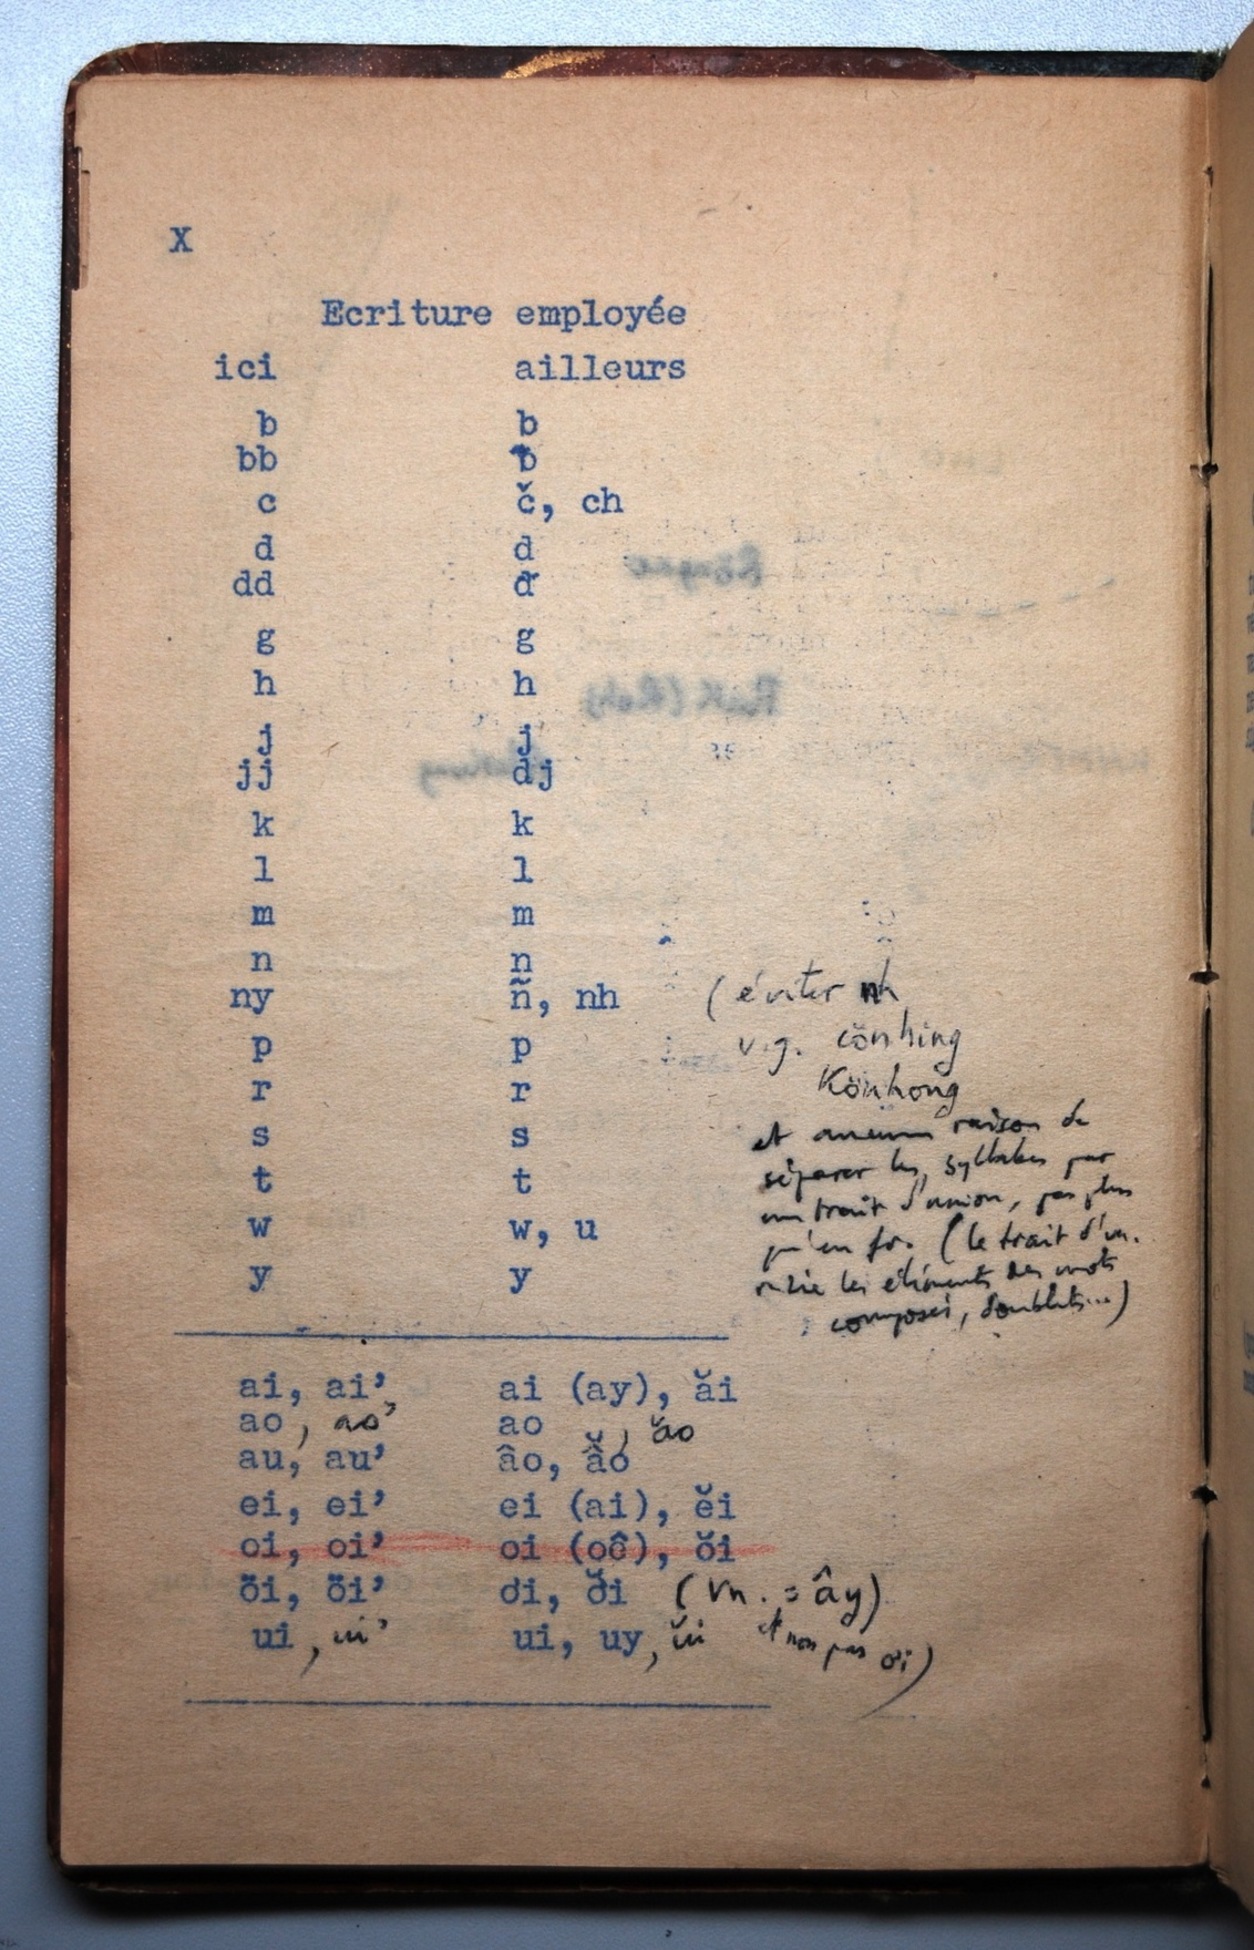 X
Ecriture employée
ici ailleurs
b b
bb ƀ
c č, ch
d d
dd đ
g g
h h
j j
jj dj
k k
l l
m m
n n
ny ñ, nh (éviter nh
p p v.g. cönhing
r r Könhong
s s et aucune raison de
t t séparer les syllabes par
un trait d'union, pas plus
w w, u qu'en fr. (le trait d'un.
y y relie les éléments des mots
composés, doublets...)
ai, ai’ ai (ay), ăi
ao, ao’ ao, ăo
au, au’ âo, ẫo
ei, ei’ ei (ai), ĕi
oi, oi’ oi (oê), ŏi
öi, öi’ ơi, ơ̆i (Vn. = ây)
ui, ui’ ui, uy, ŭi et non pas ơi)